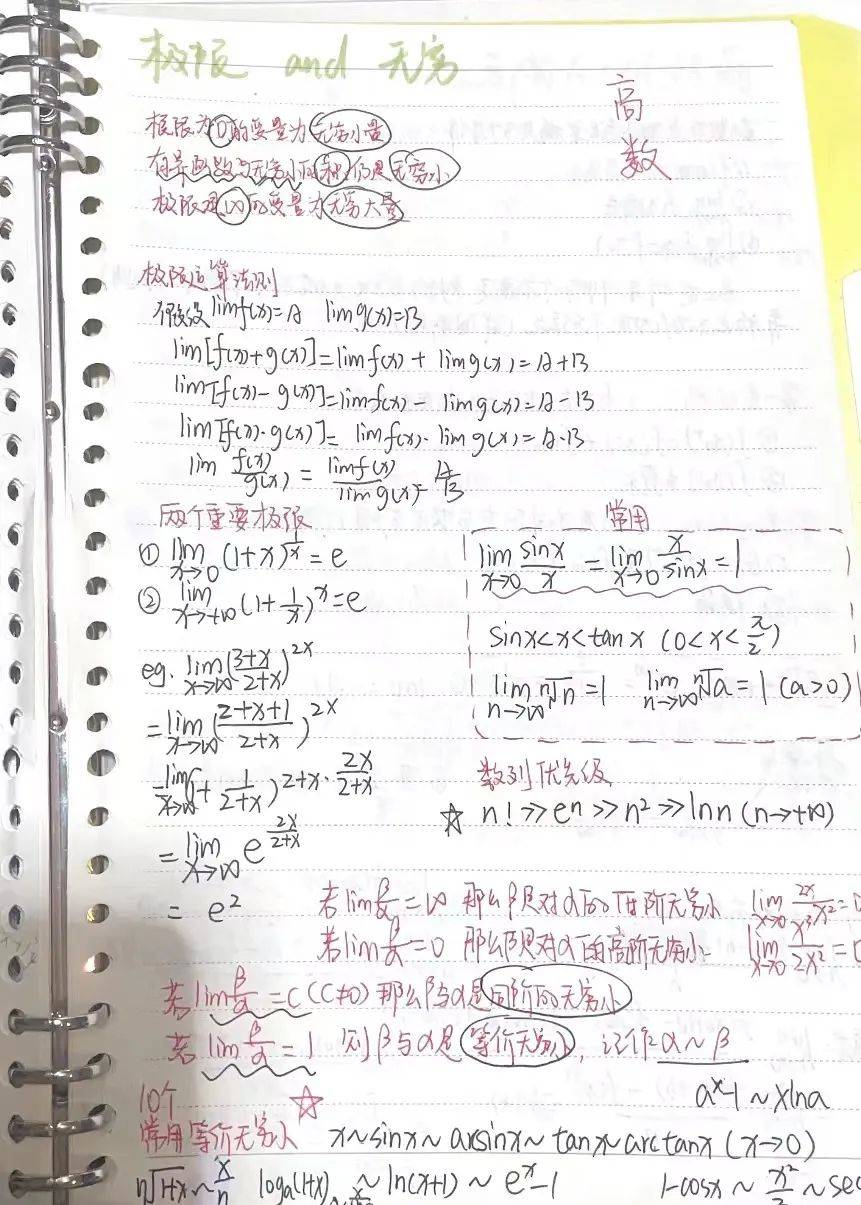 极限 and 无穷
高数
极限为0的变量为无穷小量
有界函数与无穷小的积仍是无穷小
极限是∞的变量为无穷大量
极限运算法则
假设 limf(x)=A limg(x)=B
lim[f(x)+g(x)]=limf(x)+limg(x)=A+B
lim[f(x)-g(x)]=limf(x)-limg(x)=A-B
lim[f(x)·g(x)]=limf(x)·limg(x)=A·B
lim f(x)/g(x) = limf(x)/limg(x) = A/B
两个重要极限
① lim x→0 (1+x)^(1/x) = e
② lim x→+∞ (1+1/x)^x = e
常用
lim x→0 sinx/x = lim x→0 x/sinx = 1
sinx<x<tanx (0<x<π/2)
lim n→∞ ⁿ√n = 1 lim n→∞ ⁿ√a = 1 (a>0)
eg. lim x→∞ ((3+x)/(2+x))^(2x)
= lim x→∞ ((2+x+1)/(2+x))^(2x)
= lim x→∞ (1+1/(2+x))^(2+x·2x/(2+x))
= lim x→∞ e^(2x/(2+x))
= e²
数列优先级
☆ n!≫eⁿ≫n²≫lnn (n→+∞)
若lim β/α = ∞ 那么β是对α的低阶无穷小 lim x→0
若lim β/α = 0 那么β是对α的高阶无穷小 lim x→0
若lim β/α = C (C≠0) 那么β与α是同阶的无穷小
若 lim β/α = 1 则β与α是等价无穷小, 记作α~β
10个
常用等价无穷小 ☆
aˣ-1~xlna
x~sinx~arcsinx~tanx~arctanx (x→0)
ⁿ√1+x~x/n logₐ(1+x)~ ln(x+1)~eˣ-1 1-cosx~x²/2~sec